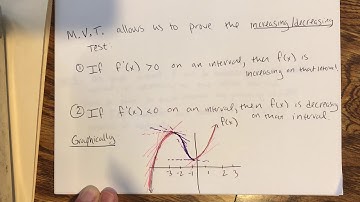 M.V.T. allows us to prove the increasing/decreasing
Test
① If f'(x) > 0 on an interval, then f(x) is
increasing on that interval
② If f'(x) < 0 on an interval, then f(x) is decreasing
on that interval
Graphically
f(x)
-3 -2 -1 1 2 3